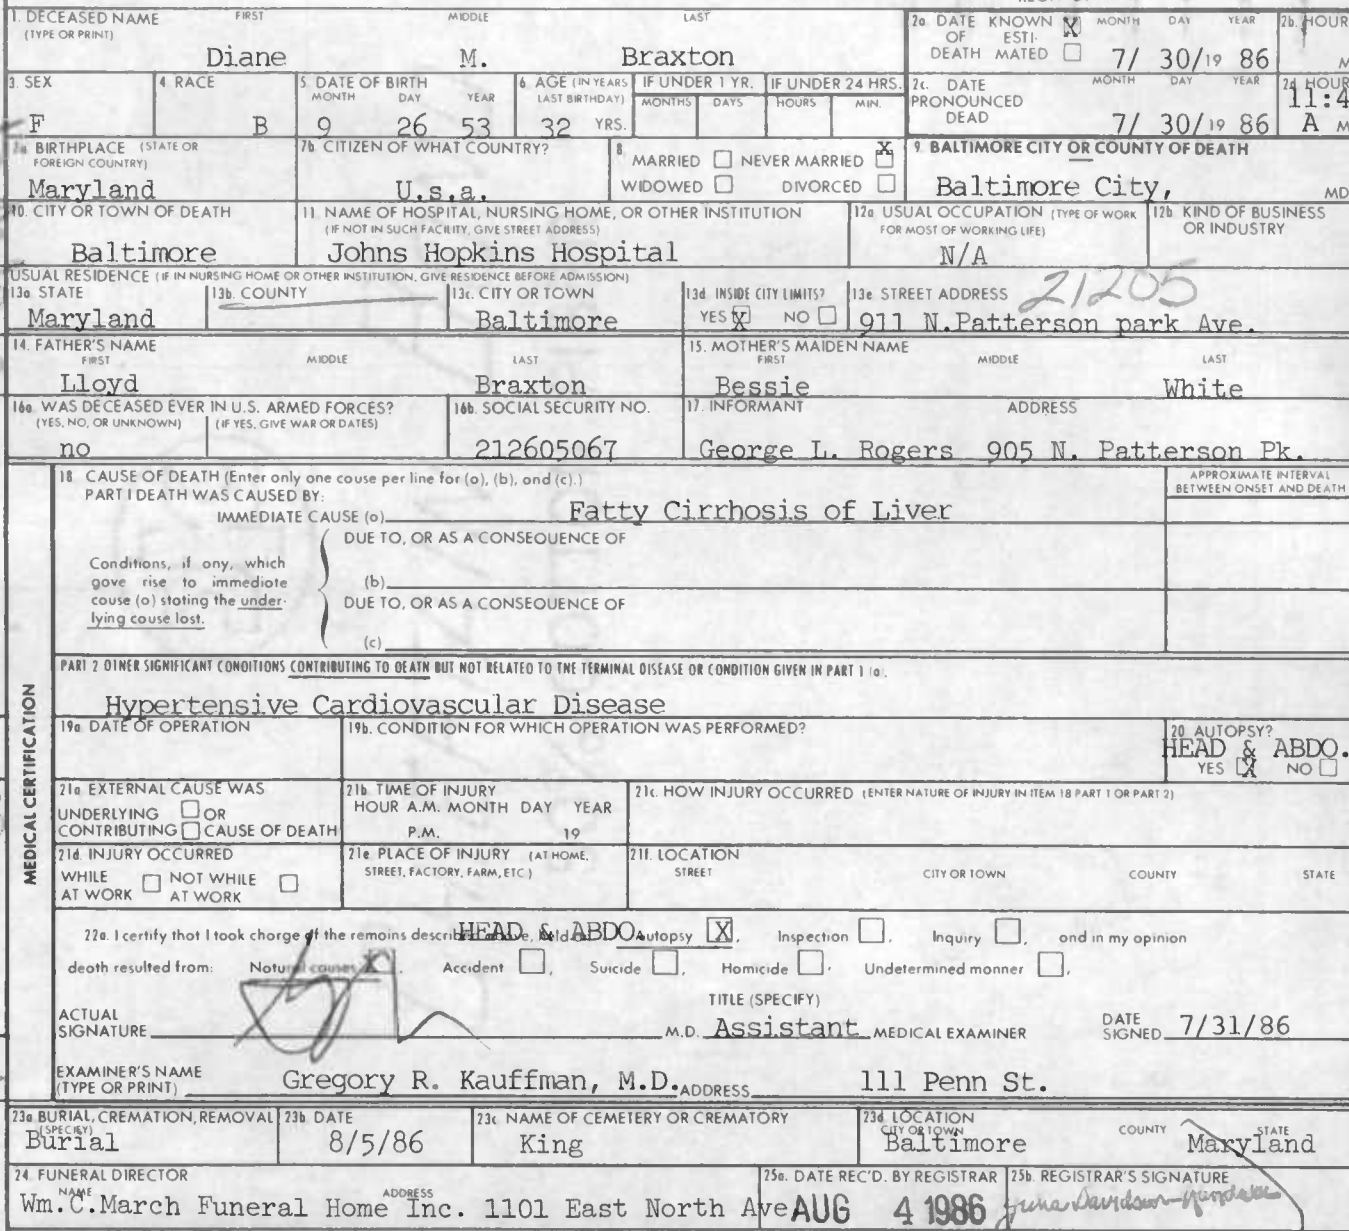 1. DECEASED NAME FIRST MIDDLE LAST
(TYPE OR PRINT)
Diane M. Braxton
2a. DATE KNOWN X MONTH DAY YEAR
OF ESTI-
DEATH MATED 7/ 30/19 86
2b. HOUR
M
3. SEX
F
4. RACE
B
5. DATE OF BIRTH
MONTH DAY YEAR
9 26 53
6. AGE (IN YEARS
LAST BIRTHDAY)
32 YRS.
IF UNDER 1 YR.
MONTHS DAYS
IF UNDER 24 HRS.
HOURS MIN.
2c. DATE MONTH DAY YEAR
PRONOUNCED
DEAD 7/ 30/19 86
2d HOUR
11:4
A M
7a BIRTHPLACE (STATE OR
FOREIGN COUNTRY)
Maryland
7b. CITIZEN OF WHAT COUNTRY?
U.s.a.
8.
MARRIED NEVER MARRIED X
WIDOWED DIVORCED
9. BALTIMORE CITY OR COUNTY OF DEATH
Baltimore City, MD
10. CITY OR TOWN OF DEATH
Baltimore
11. NAME OF HOSPITAL, NURSING HOME, OR OTHER INSTITUTION
(IF NOT IN SUCH FACILITY, GIVE STREET ADDRESS)
Johns Hopkins Hospital
12a USUAL OCCUPATION (TYPE OF WORK
FOR MOST OF WORKING LIFE)
N/A
12b. KIND OF BUSINESS
OR INDUSTRY
USUAL RESIDENCE (IF IN NURSING HOME OR OTHER INSTITUTION, GIVE RESIDENCE BEFORE ADMISSION)
13a STATE
Maryland
13b. COUNTY
13c. CITY OR TOWN
Baltimore
13d. INSIDE CITY LIMITS?
YES X NO
13e STREET ADDRESS 21205
911 N.Patterson park Ave.
14. FATHER'S NAME
FIRST MIDDLE LAST
Lloyd Braxton
15. MOTHER'S MAIDEN NAME
FIRST MIDDLE LAST
Bessie White
16a. WAS DECEASED EVER IN U.S. ARMED FORCES?
(YES, NO, OR UNKNOWN) (IF YES, GIVE WAR OR DATES)
no
16b. SOCIAL SECURITY NO.
212605067
17. INFORMANT ADDRESS
George L. Rogers 905 N. Patterson Pk.
MEDICAL CERTIFICATION
18 CAUSE OF DEATH (Enter only one cause per line for (a), (b), and (c).)
PART I DEATH WAS CAUSED BY:
IMMEDIATE CAUSE (a) Fatty Cirrhosis of Liver
APPROXIMATE INTERVAL
BETWEEN ONSET AND DEATH
DUE TO, OR AS A CONSEQUENCE OF
Conditions, if any, which
gave rise to immediate
cause (a) stating the under-
lying cause last.
(b)
DUE TO, OR AS A CONSEQUENCE OF
(c)
PART 2 OTHER SIGNIFICANT CONDITIONS CONTRIBUTING TO DEATH BUT NOT RELATED TO THE TERMINAL DISEASE OR CONDITION GIVEN IN PART 1 (a).
Hypertensive Cardiovascular Disease
19a DATE OF OPERATION
19b. CONDITION FOR WHICH OPERATION WAS PERFORMED?
20 AUTOPSY?
HEAD & ABDO.
YES X NO
21a EXTERNAL CAUSE WAS
UNDERLYING OR
CONTRIBUTING CAUSE OF DEATH
21b TIME OF INJURY
HOUR A.M. MONTH DAY YEAR
P.M. 19
21c. HOW INJURY OCCURRED (ENTER NATURE OF INJURY IN ITEM 18 PART 1 OR PART 2)
21d. INJURY OCCURRED
WHILE NOT WHILE
AT WORK AT WORK
21e PLACE OF INJURY (AT HOME,
STREET, FACTORY, FARM, ETC)
21f. LOCATION
STREET CITY OR TOWN COUNTY STATE
22a. I certify that I took charge of the remains described above, held HEAD & ABDO. Autopsy X, Inspection , Inquiry , and in my opinion
death resulted from: Natural causes X, Accident , Suicide , Homicide , Undetermined manner ,
ACTUAL
SIGNATURE
TITLE (SPECIFY)
M.D. Assistant MEDICAL EXAMINER
DATE
SIGNED 7/31/86
EXAMINER'S NAME
(TYPE OR PRINT) Gregory R. Kauffman, M.D. ADDRESS 111 Penn St.
23a BURIAL, CREMATION, REMOVAL
(SPECIFY)
Burial
23b. DATE
8/5/86
23c NAME OF CEMETERY OR CREMATORY
King
23d. LOCATION
CITY OR TOWN COUNTY STATE
Baltimore Maryland
24. FUNERAL DIRECTOR
NAME ADDRESS
Wm.C.March Funeral Home Inc. 1101 East North Ave
25a. DATE REC'D. BY REGISTRAR
AUG 4 1986
25b. REGISTRAR'S SIGNATURE